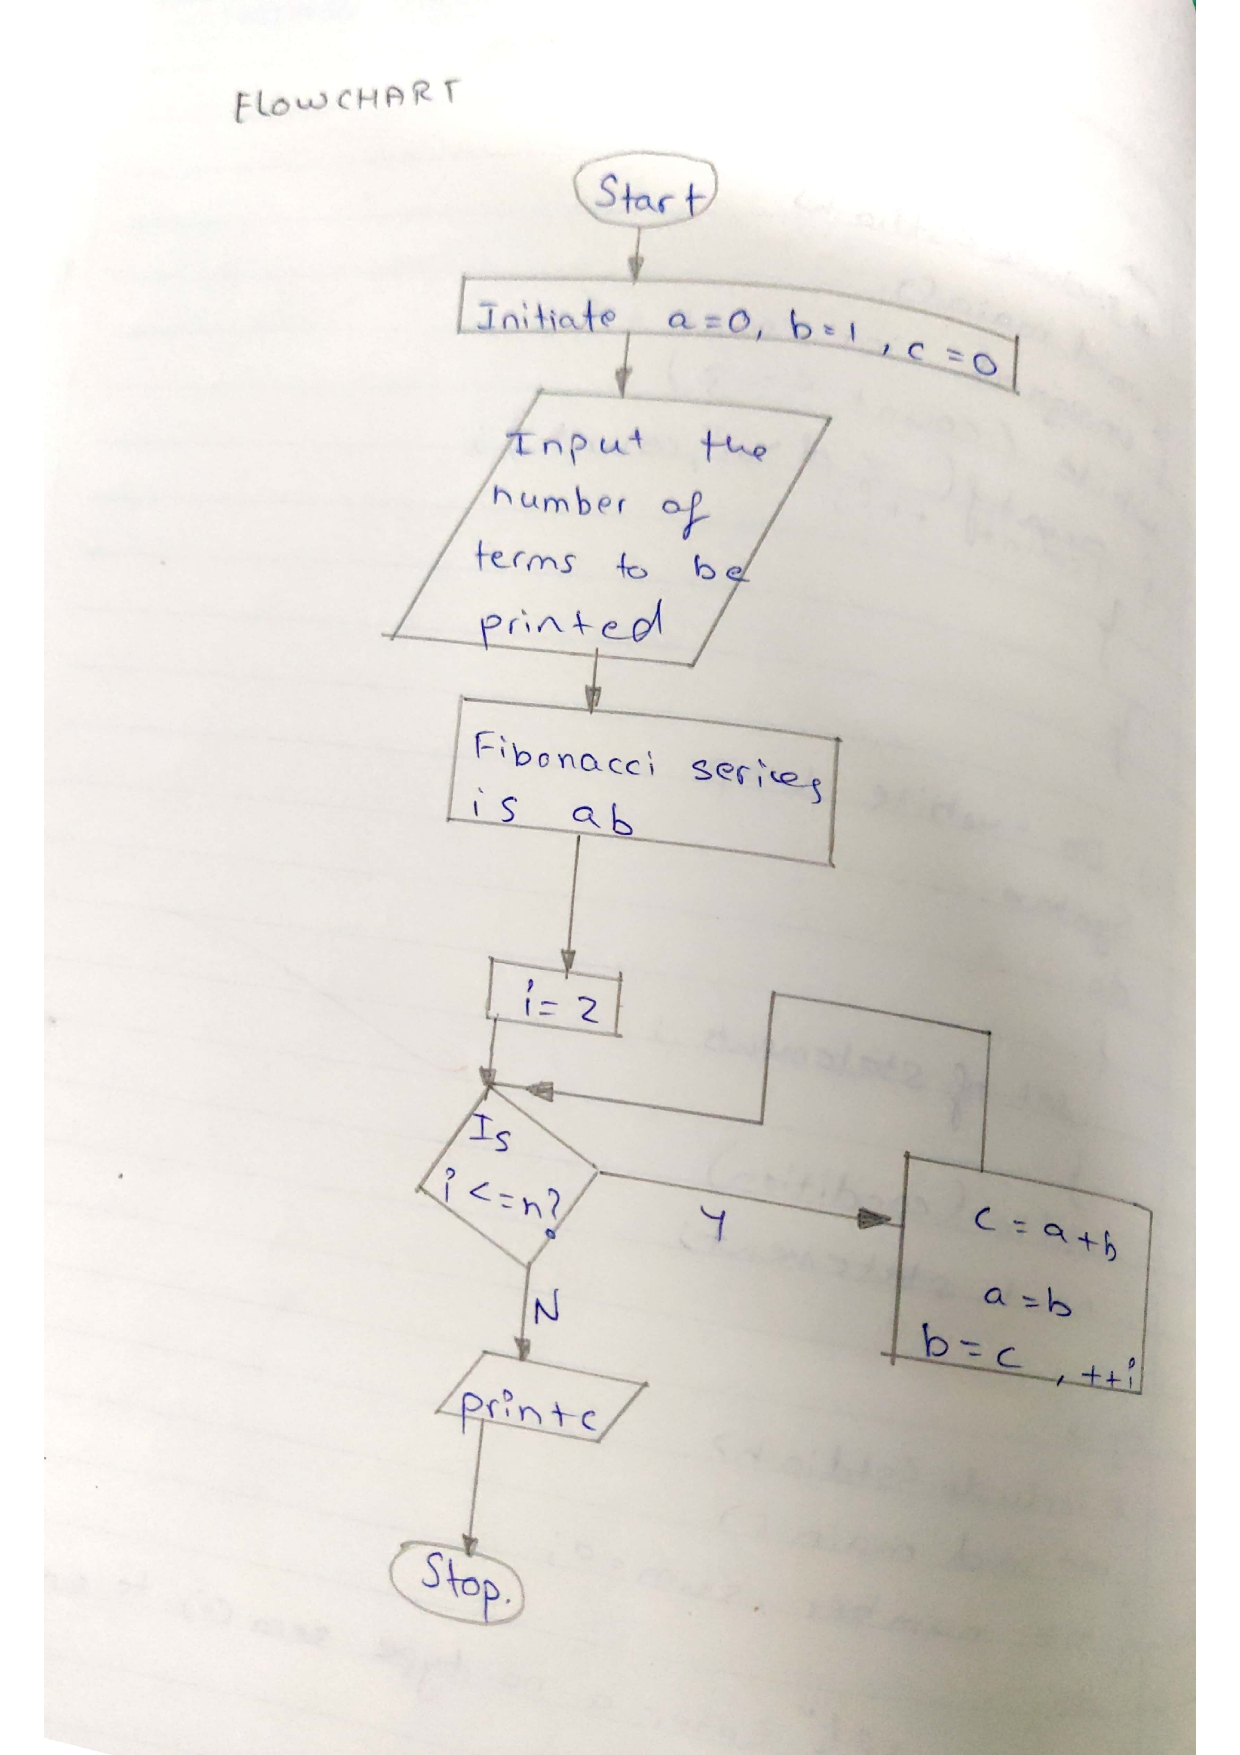 FLOWCHART
Start
Initiate a=0, b=1, c=0
Input the
number of
terms to be
printed
Fibonacci series
is ab
i=2
Is
i<=n?
Y
c=a+b
a=b
b=c, ++i
N
printc
Stop.